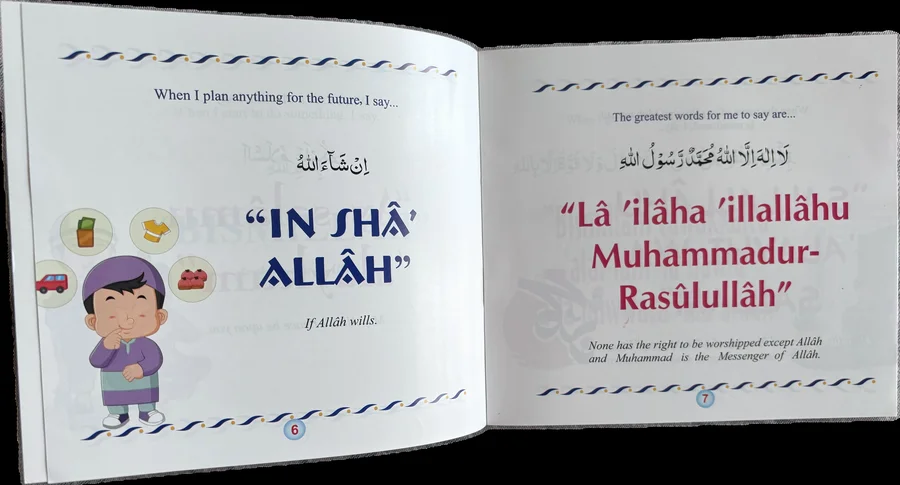 When I plan anything for the future, I say...
اِنْ شَآءَ اللّٰهُ
“IN SHÂ’
ALLÂH”
If Allâh wills.
6
The greatest words for me to say are...
لَا اِلٰهَ اِلَّا اللّٰهُ مُحَمَّدٌ رَّسُوْلُ اللّٰهِ
“Lâ ’ilâha ’illallâhu
Muhammadur-
Rasûlullâh”
None has the right to be worshipped except Allâh
and Muhammad is the Messenger of Allâh.
7